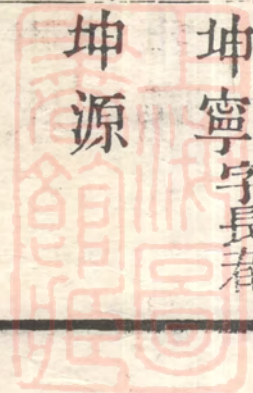 坤寧字長春
坤源